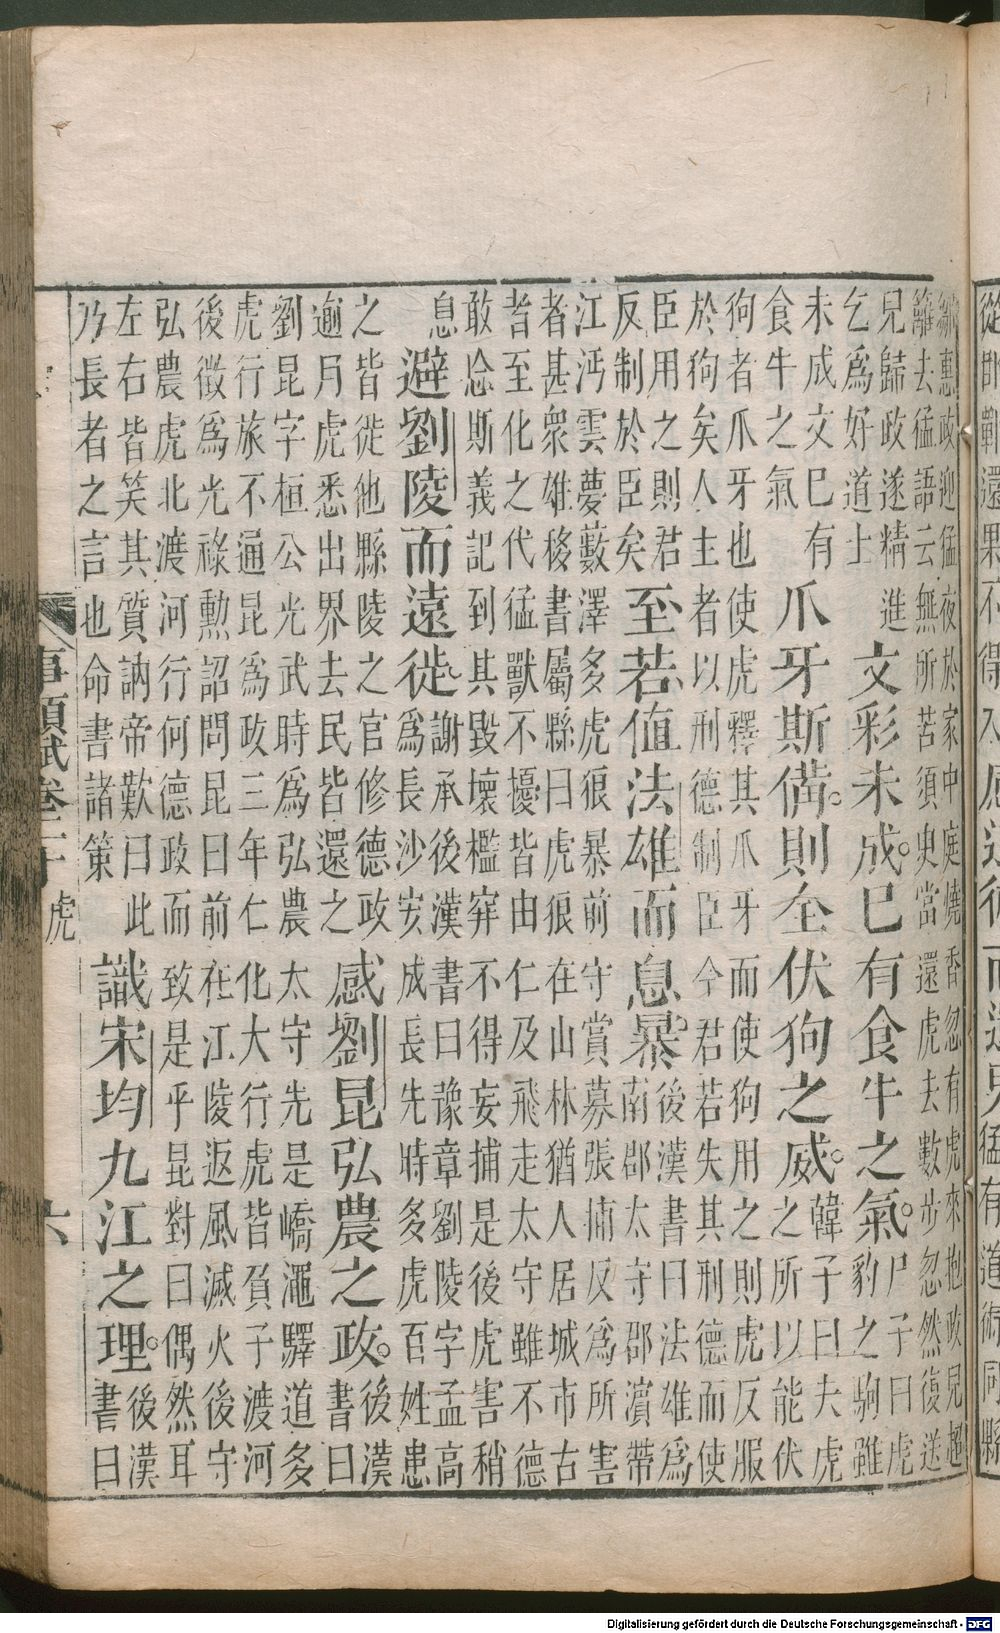 鄒惠政迎猛夜於家中庭燒香忽有虎來抱政兒超
籬去猛語云無所苦須臾當還虎去數步忽然復送
兒歸政遂精進
乞爲好道士
文彩未成。已有食牛之氣。
尸子曰虎
豹之駒雖
未成文已有
食牛之氣
爪牙斯備。則全伏狗之威。
韓子曰夫虎
之所以能伏
狗者爪牙也使虎釋其爪牙而使狗用之則虎反服
於狗矣人主者以刑德制臣今君若失其刑德而使
臣用之則君
反制於臣矣
至若值法雄而息暴。
後漢書曰法雄爲
南郡太守郡濵帶
江沔雲夢藪澤多虎狼暴前守賞募張捕反爲所害
者甚衆雄移書屬縣曰虎狼在山林猶人居城市古
者至化之代猛獸不擾皆由仁及飛走太守雖不德
敢忘斯義記到其毀壞檻穽不得妄捕是後虎害稍
息
避劉陵而遠徙。
謝承後漢書曰豫章劉陵字孟高
爲長沙安成長先時多虎百姓患
之皆徙他縣陵之官修德政
逾月虎悉出界去民皆還之
感劉昆弘農之政。
後漢
書曰
劉昆字桓公光武時爲弘農太守先是崤澠驛道多
虎行旅不通昆爲政三年仁化大行虎皆負子渡河
後徵爲光祿勳詔問昆曰前在江陵返風滅火後守
弘農虎北渡河行何德政而致是乎昆對曰偶然耳
左右皆笑其質訥帝歎曰此
乃長者之言也命書諸策
識宋均九江之理。
後漢
書曰
事類賦卷二十 虎 六
Digitalisierung gefördert durch die Deutsche Forschungsgemeinschaft - DFG